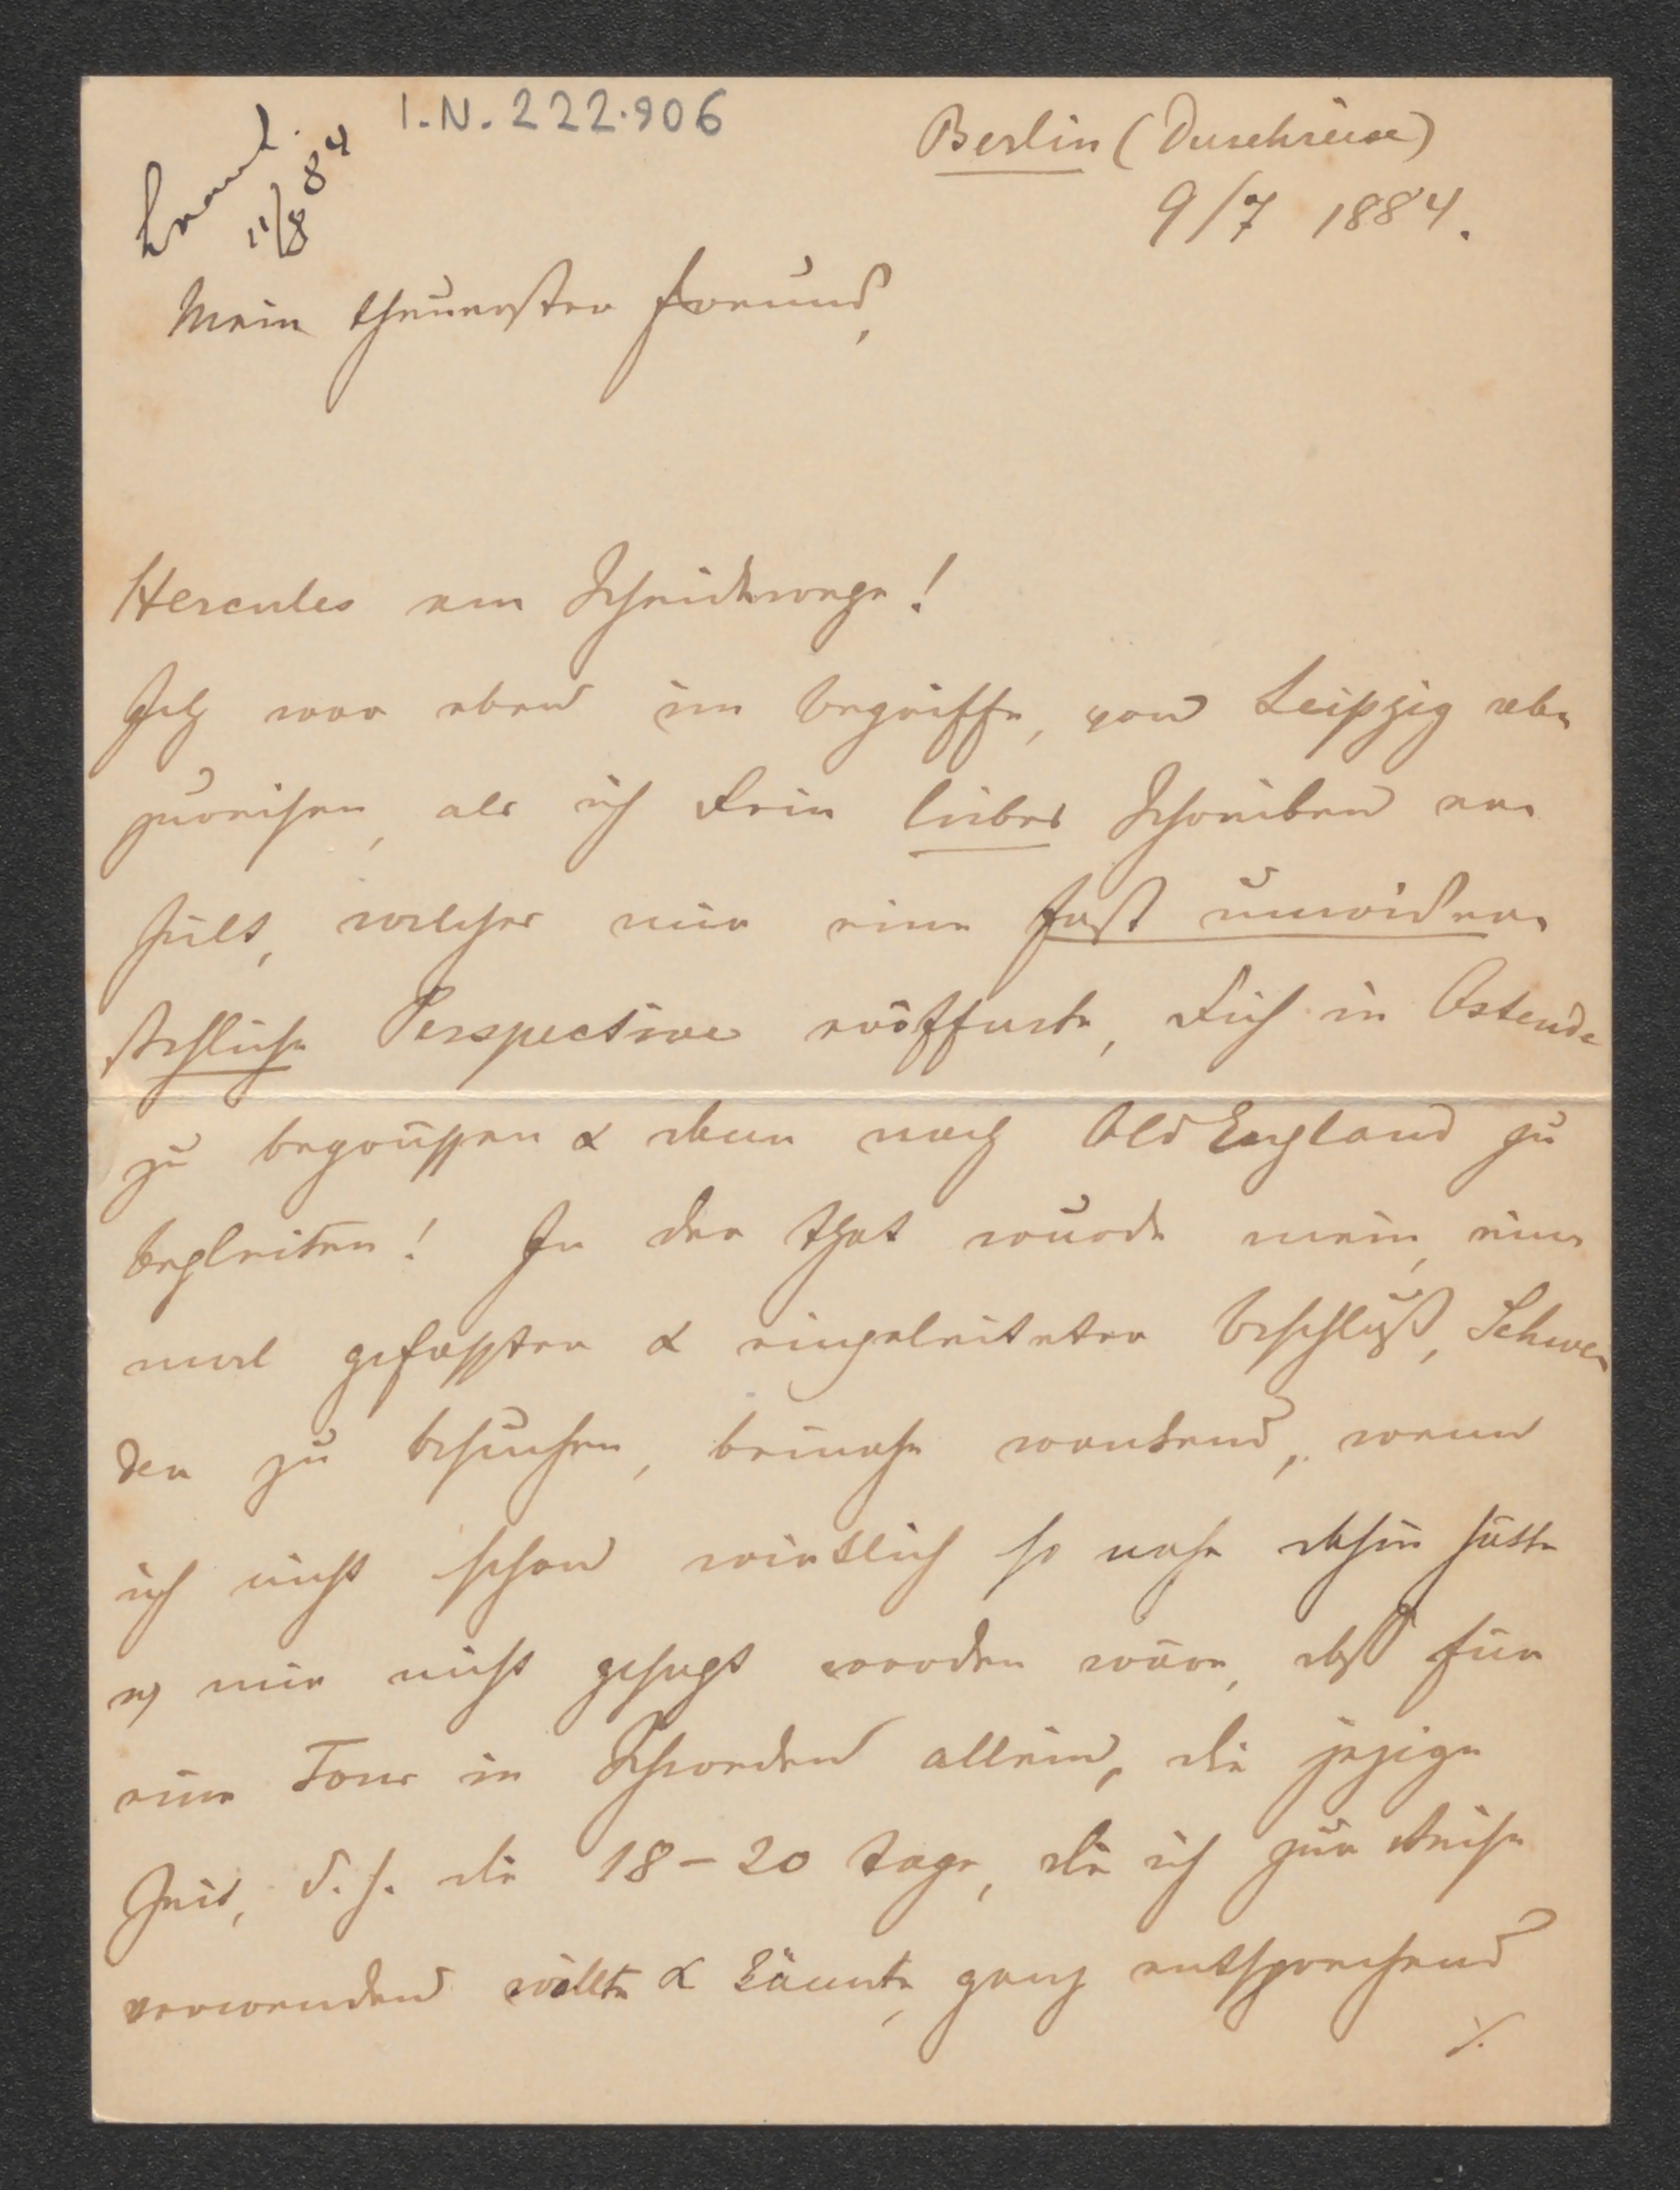 I.N. 222.906
11/8 84
Berlin (Durchreise)
9/7 1884.
Mein theuerster Freund,
Hercules am Scheidewege!
Ich war eben im Begriffe, von Leipzig ab-
zureisen, als ich Dein liebes Schreiben er-
hielt, welches mir eine fast unwider-
stehliche Perspective eröffnete, Dich in Ostende
zu begrüssen & dann nach Old England zu
begleiten! In der That wurde mein, ein-
mal gefasster & eingeleiteter Beschluß, Schwe-
den zu besuchen, beinahe wankend, wenn
ich nicht schon wirklich so nahe dahin hätte
& mir nicht gesagt worden wäre, daß für
eine Tour in Schweden allein, die jezige
Zeit, d. h. die 18-20 Tage, die ich zur Reise
verwenden wollte & könnte, ganz entsprechend
./.